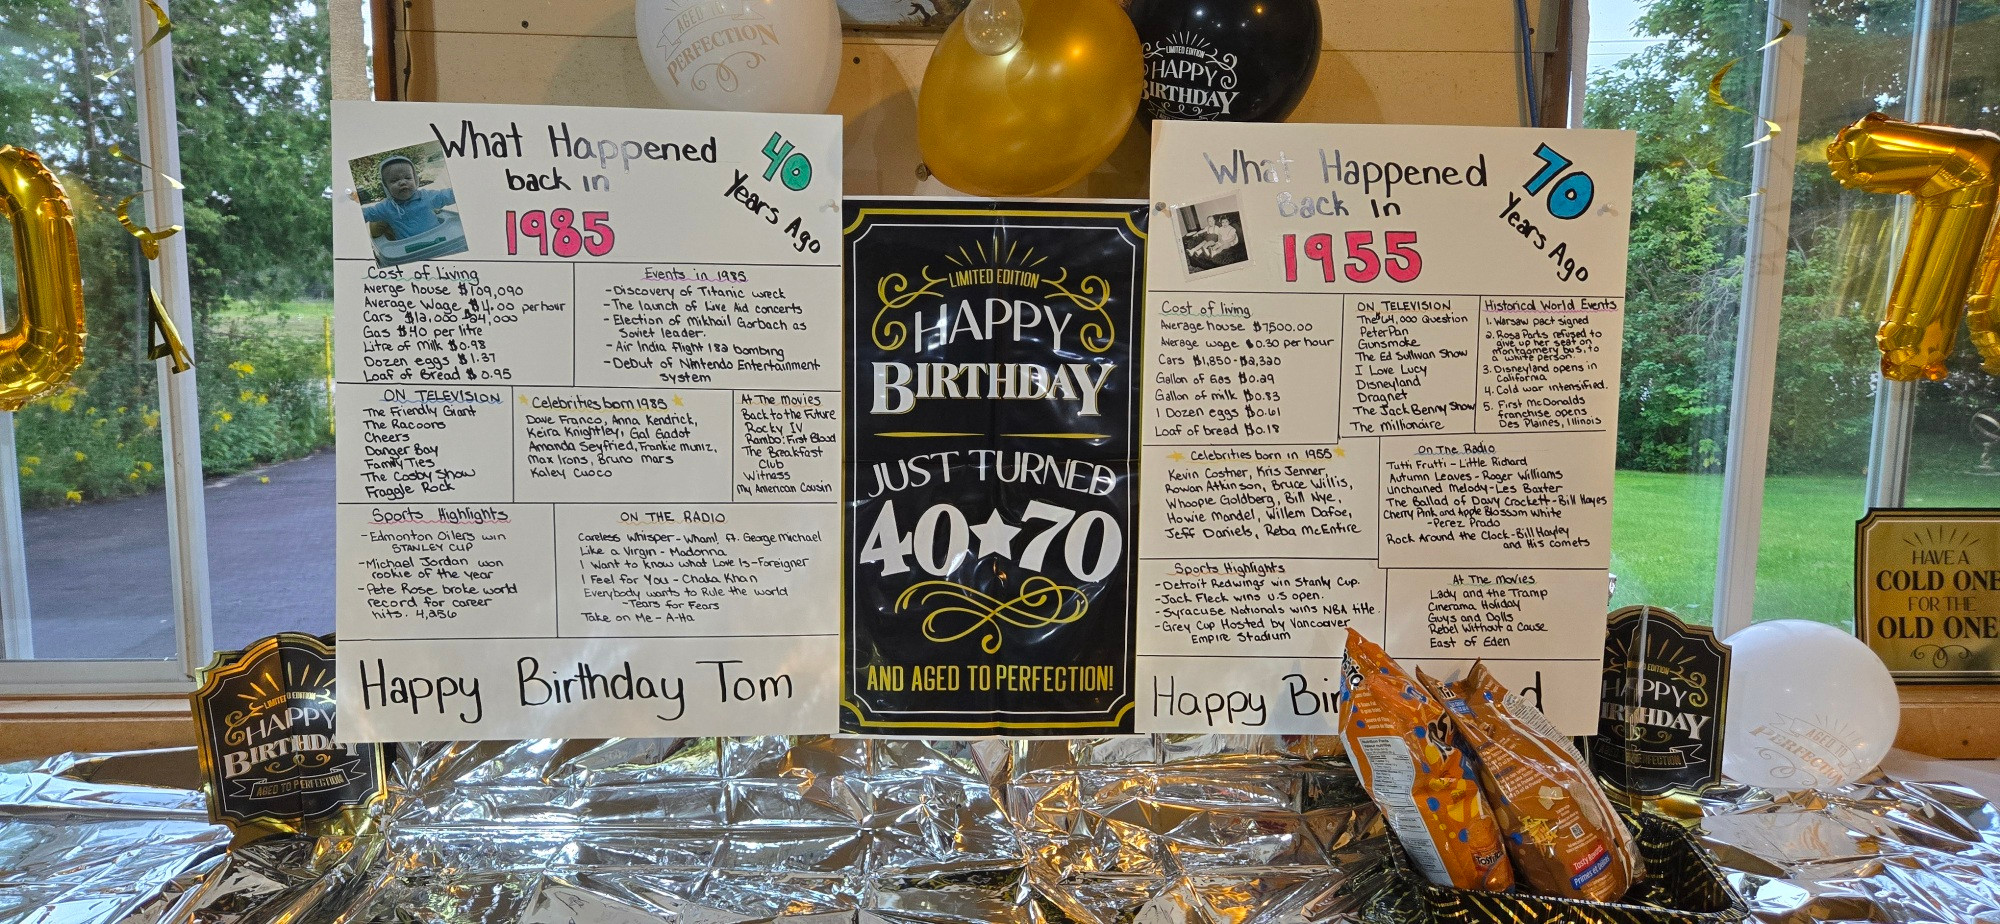 AGED TO
PERFECTION
LIMITED EDITION
HAPPY
BIRTHDAY
What Happened
back in
1985
40
Years Ago
Cost of Living
Averge house $109,090
Average Wage $4.00 per hour
Cars $12,000-$24,000
Gas $.40 per litre
Litre of Milk $0.98
Dozen eggs $1.37
Loaf of Bread $0.95
Events in 1985
-Discovery of Titanic wreck
-The launch of Live Aid concerts
-Election of Mikhail Gorbach as
Soviet leader.
-Air India flight 182 bombing
-Debut of Nintendo Entertainment
System
ON TELEVISION
The Friendly Giant
The Racoons
Cheers
Danger Bay
Family Ties
The Cosby Show
Fraggle Rock
Celebrities born 1985
Dave Franco, Anna Kendrick,
Keira Knightley, Gal Gadot
Amanda Seyfried, Frankie Muniz,
Max Irons, Bruno Mars
Kaley Cuoco
At The Movies
Back to the Future
Rocky IV
Rambo: First Blood
The Breakfast
Club
Witness
My American Cousin
Sports Highlights
-Edmonton Oilers win
STANLEY CUP
-Michael Jordan won
rookie of the year
-Pete Rose broke world
record for career
hits. 4,256
ON THE RADIO
Careless Whisper - Wham! ft. George Michael
Like a Virgin - Madonna
I Want to Know what Love Is - Foreigner
I Feel for You - Chaka Khan
Everybody wants to Rule the world
-Tears for Fears
Take on Me - A-Ha
Happy Birthday Tom
LIMITED EDITION
HAPPY
BIRTHDAY
JUST TURNED
40★70
AND AGED TO PERFECTION!
What Happened
Back In
1955
70
Years Ago
Cost of living
Average house $7,500.00
Average wage $0.30 per hour
Cars $1,850-$2,320
Gallon of Gas $0.29
Gallon of milk $0.83
1 Dozen eggs $0.61
Loaf of bread $0.18
ON TELEVISION
The $64,000 Question
Peter Pan
Gunsmoke
The Ed Sullivan Show
I Love Lucy
Disneyland
Dragnet
The Jack Benny Show
The Millionaire
Historical World Events
1. Warsaw pact signed
2. Rosa Parks refused to
give up her seat on
montgomery bus, to
a white person.
3. Disneyland opens in
California
4. Cold war intensified.
5. First McDonalds
franchise opens
Des Plaines, Illinois
Celebrities born in 1955
Kevin Costner, Kris Jenner,
Rowan Atkinson, Bruce Willis,
Whoopie Goldberg, Bill Nye,
Howie Mandel, Willem Dafoe,
Jeff Daniels, Reba McEntire
On The Radio
Tutti Frutti - Little Richard
Autumn Leaves - Roger Williams
Unchained Melody - Les Baxter
The Ballad of Davy Crockett - Bill Hayes
Cherry Pink and Apple Blossom White
-Perez Prado
Rock Around the Clock - Bill Hayley
and His comets
Sports Highlights
-Detroit Redwings win Stanly Cup.
-Jack Fleck wins U.S open.
-Syracuse Nationals wins NBA title.
-Grey Cup Hosted by Vancouver
Empire Stadium
At The Movies
Lady and the Tramp
Cinerama Holiday
Guys and Dolls
Rebel Without a Cause
East of Eden
Happy Bir d
LIMITED EDITION
HAPPY
BIRTHDAY
AGED TO PERFECTION
HAPPY
BIRTHDAY
PERFECTION
HAVE A
COLD ONE
FOR THE
OLD ONE
PERFECTION
Tostitos
Tasty Rewards
Primes et Délices